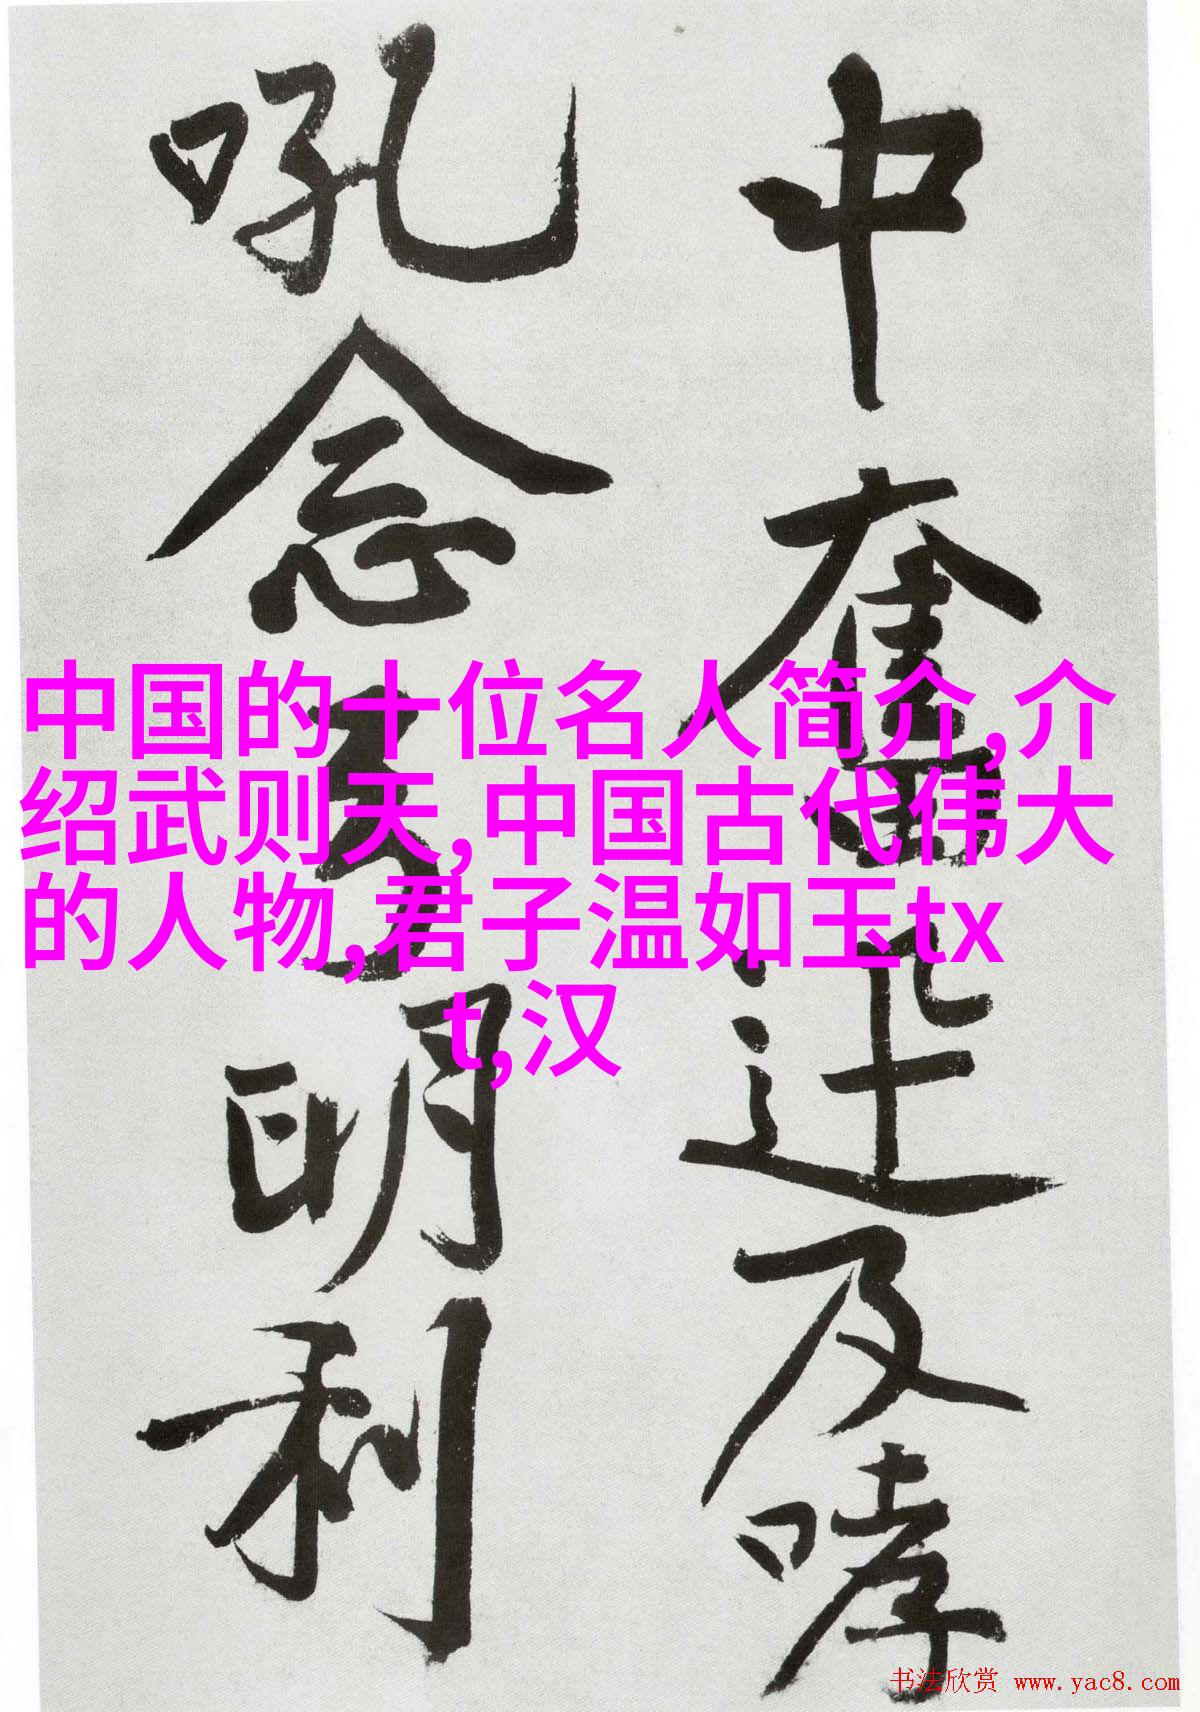 中奮迅及哮
吼念明利
中国的十位名人简介,介
绍武则天,中国古代伟大
的人物,君子温如玉tx
t,汉
书法欣赏 www.yac8.com